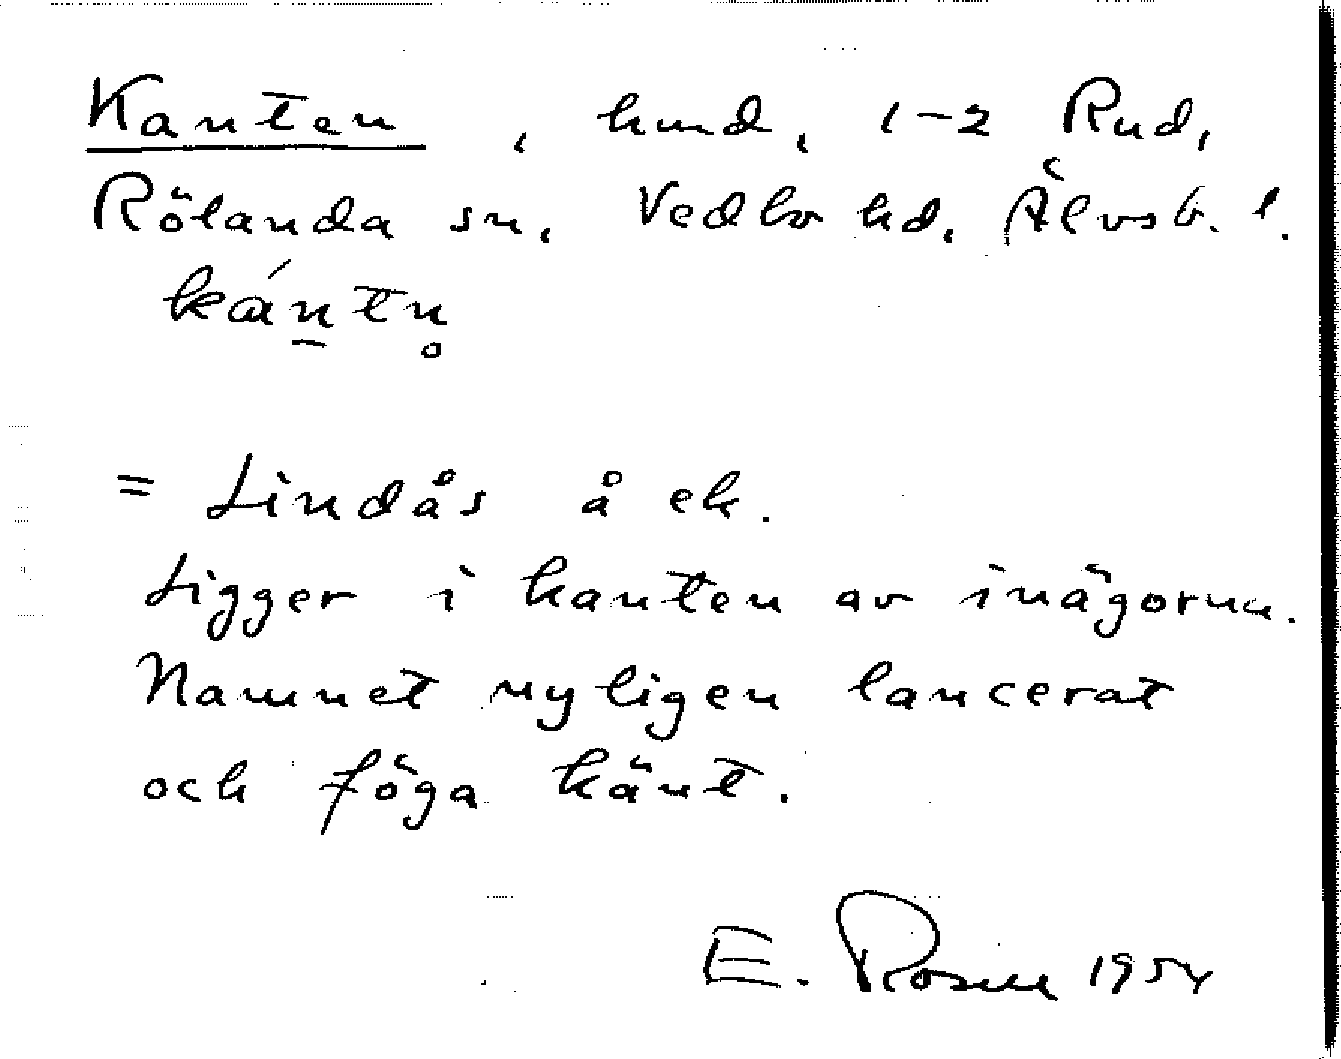 Kanten, hmd, 1-2 Rud,
Rölanda sn, Vedbo hd, Älvsb. l.
kán̠tn̥
= Lindås å ek.
Ligger i kanten av inägorna.
Namnet nyligen lancerat
och föga känt.
E. Rosin 1954